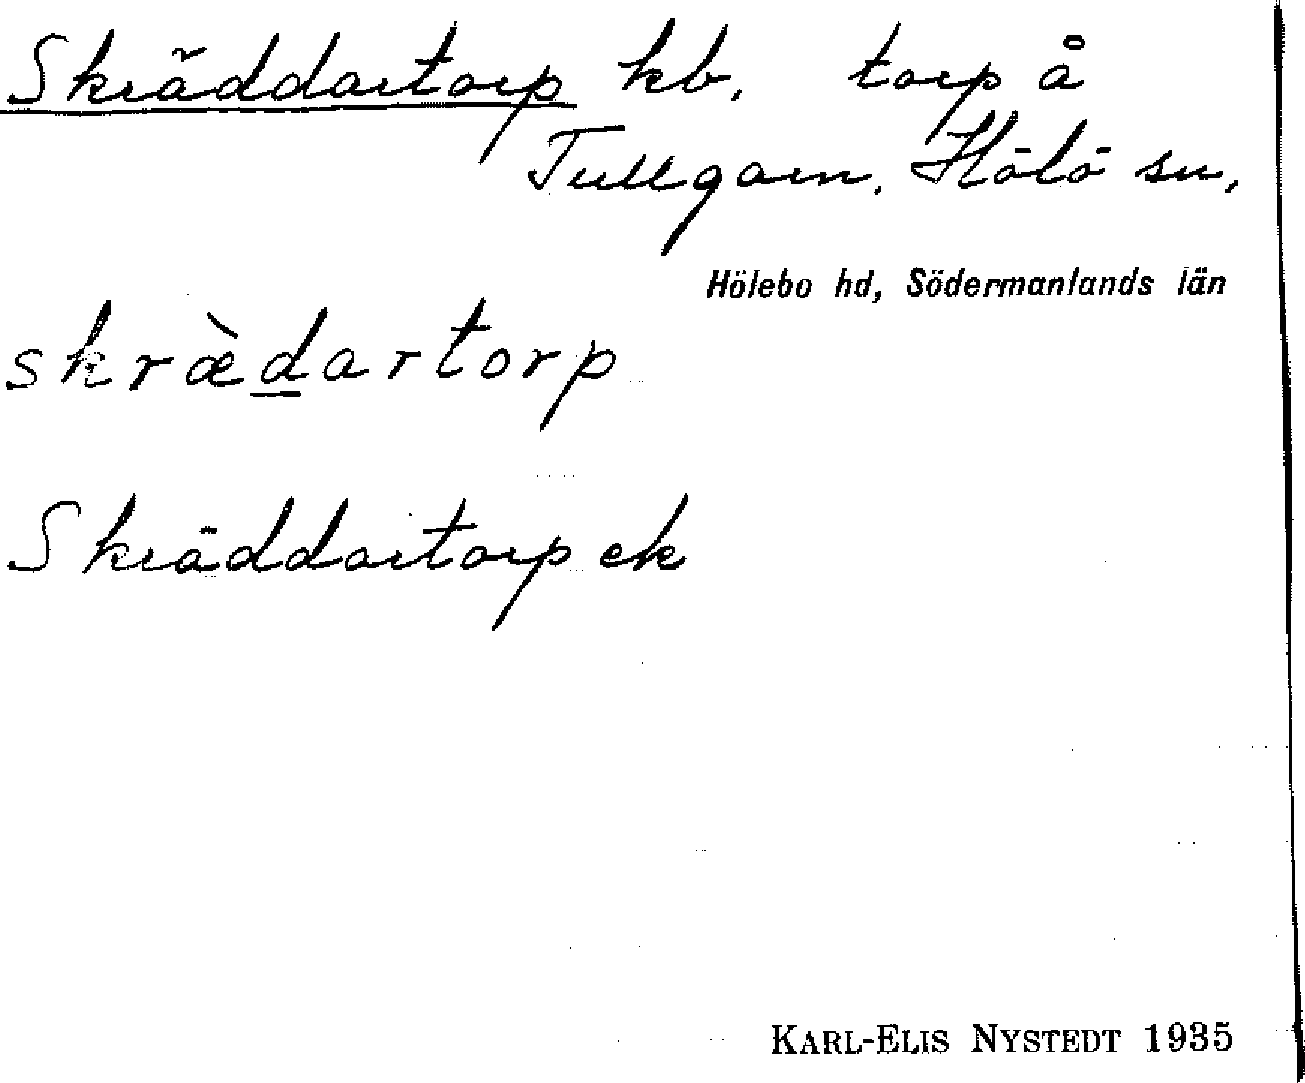 Skräddartorp kb, torp å
Tullgarn, Hölö sn,
Hölebo hd, Södermanlands län
skræ̀dartorp
Skräddartorp ek
KARL-ELIS NYSTEDT 1935